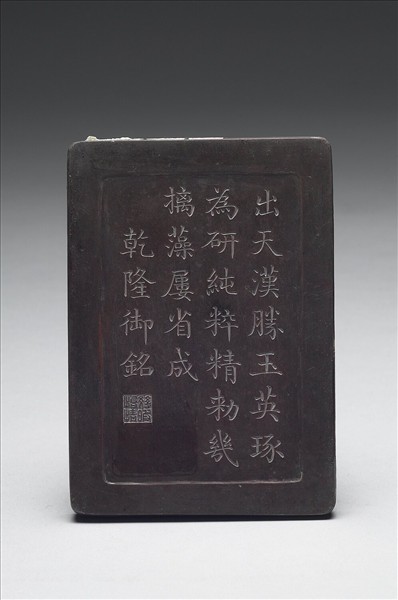 出天漢勝玉英琢
為研純粹精勑幾
摛藻屢省成
乾隆御銘